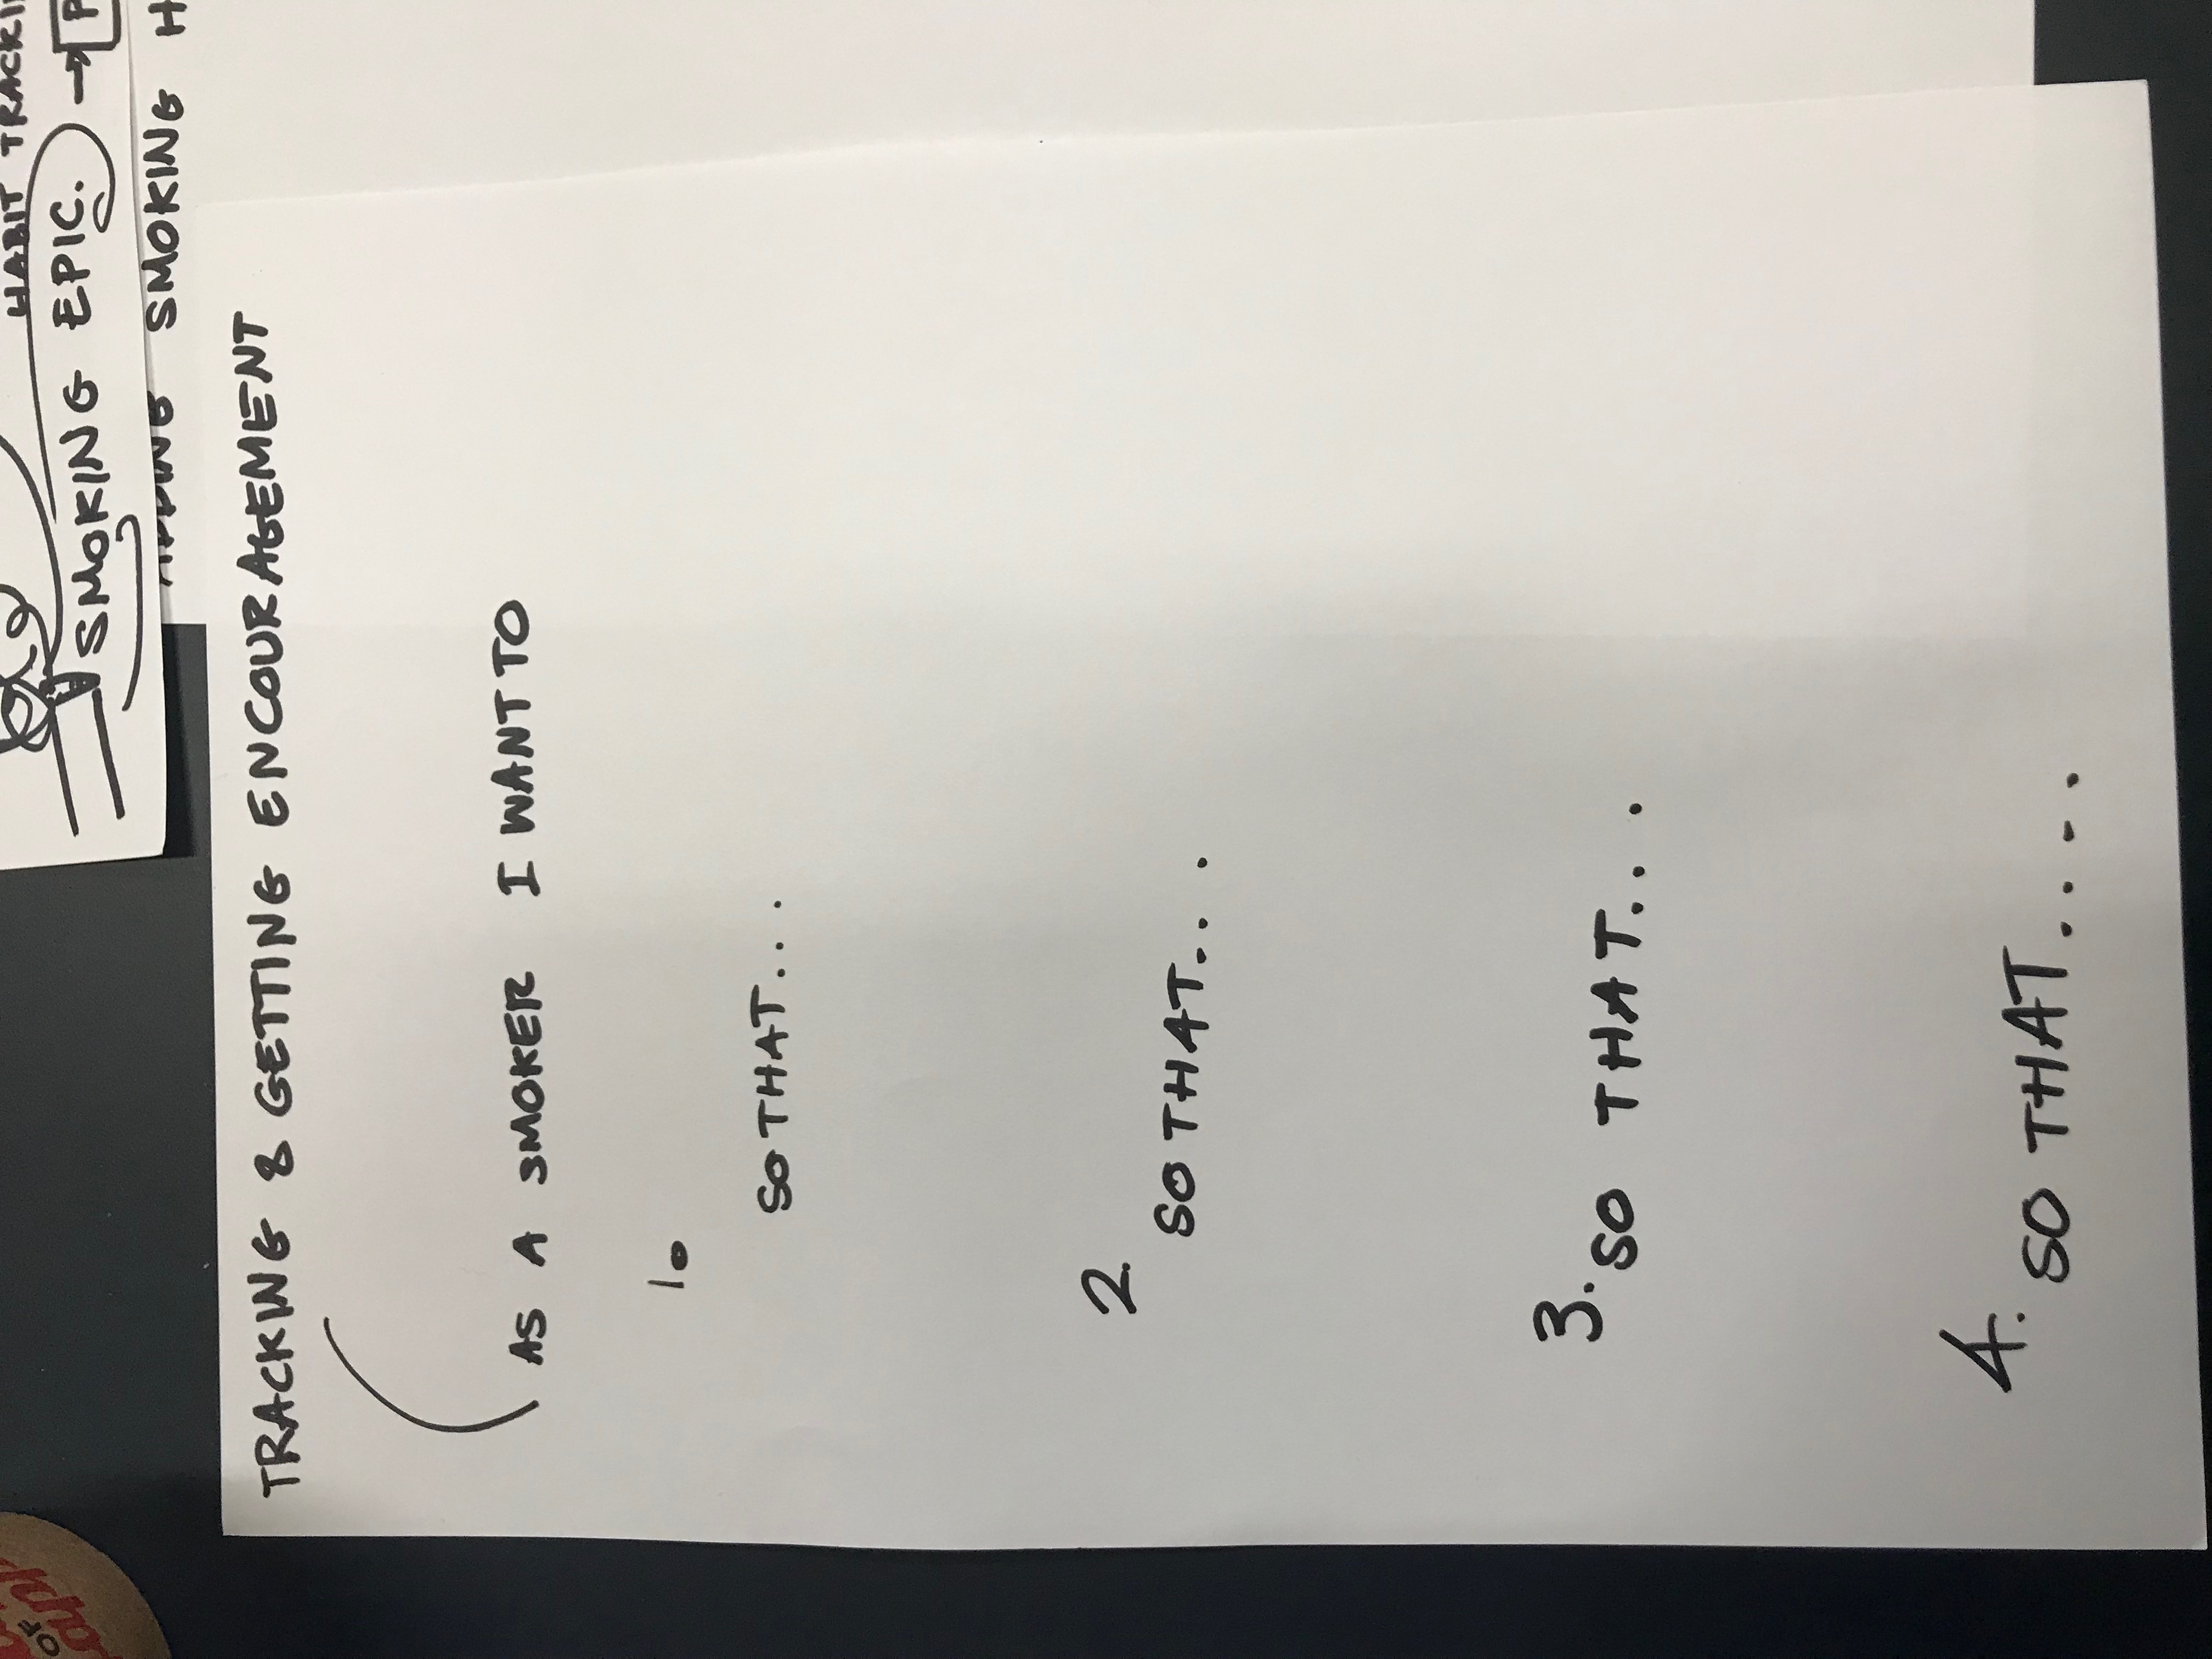 OF
HABIT
SMOKING EPIC.
SMOKING
TRACKING & GETTING ENCOURAGEMENT
AS A SMOKER I WANT TO
1.
SO THAT...
2.
SO THAT...
3.
SO THAT...
4.
SO THAT....